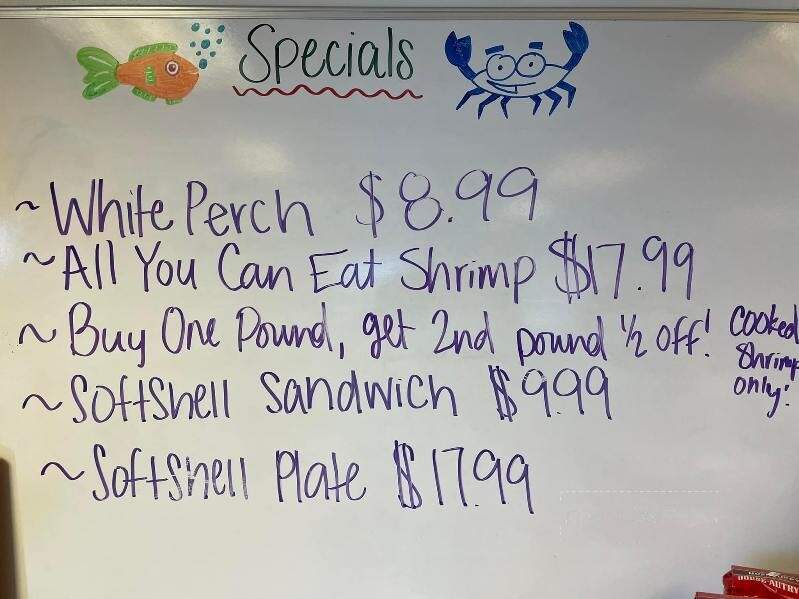 Specials
~ White Perch $8.99
~ All You Can Eat Shrimp $17.99
~ Buy One Pound, get 2nd pound 1/2 off! Cooked Shrimp only!
~ Softshell Sandwich $9.99
~ Softshell Plate $17.99
HOUSE AUTRY